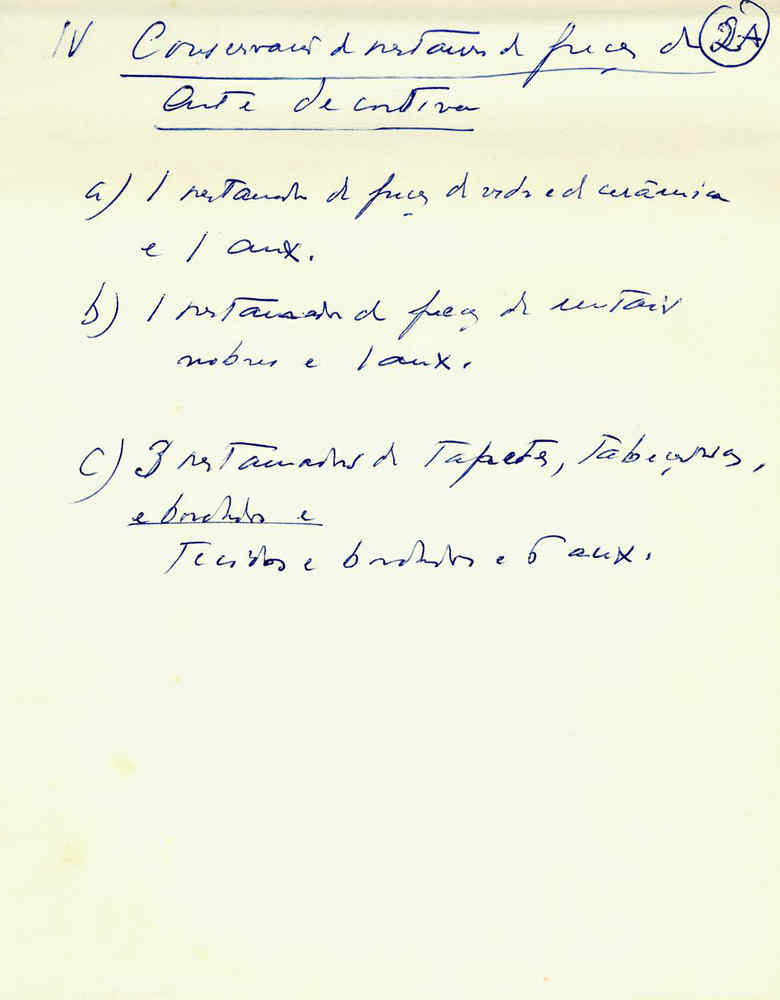 IV Conservação e restauro de peças de 2A
Arte decorativa
a) 1 restaurador de peças de vidro e de cerâmica
e 1 aux.
b) 1 restaurador de peças de metais
nobres e 1 aux.
c) 3 restauradores de Tapetes, Tabeçarias,
e bordados e
Tecidos e bordados e 6 aux.